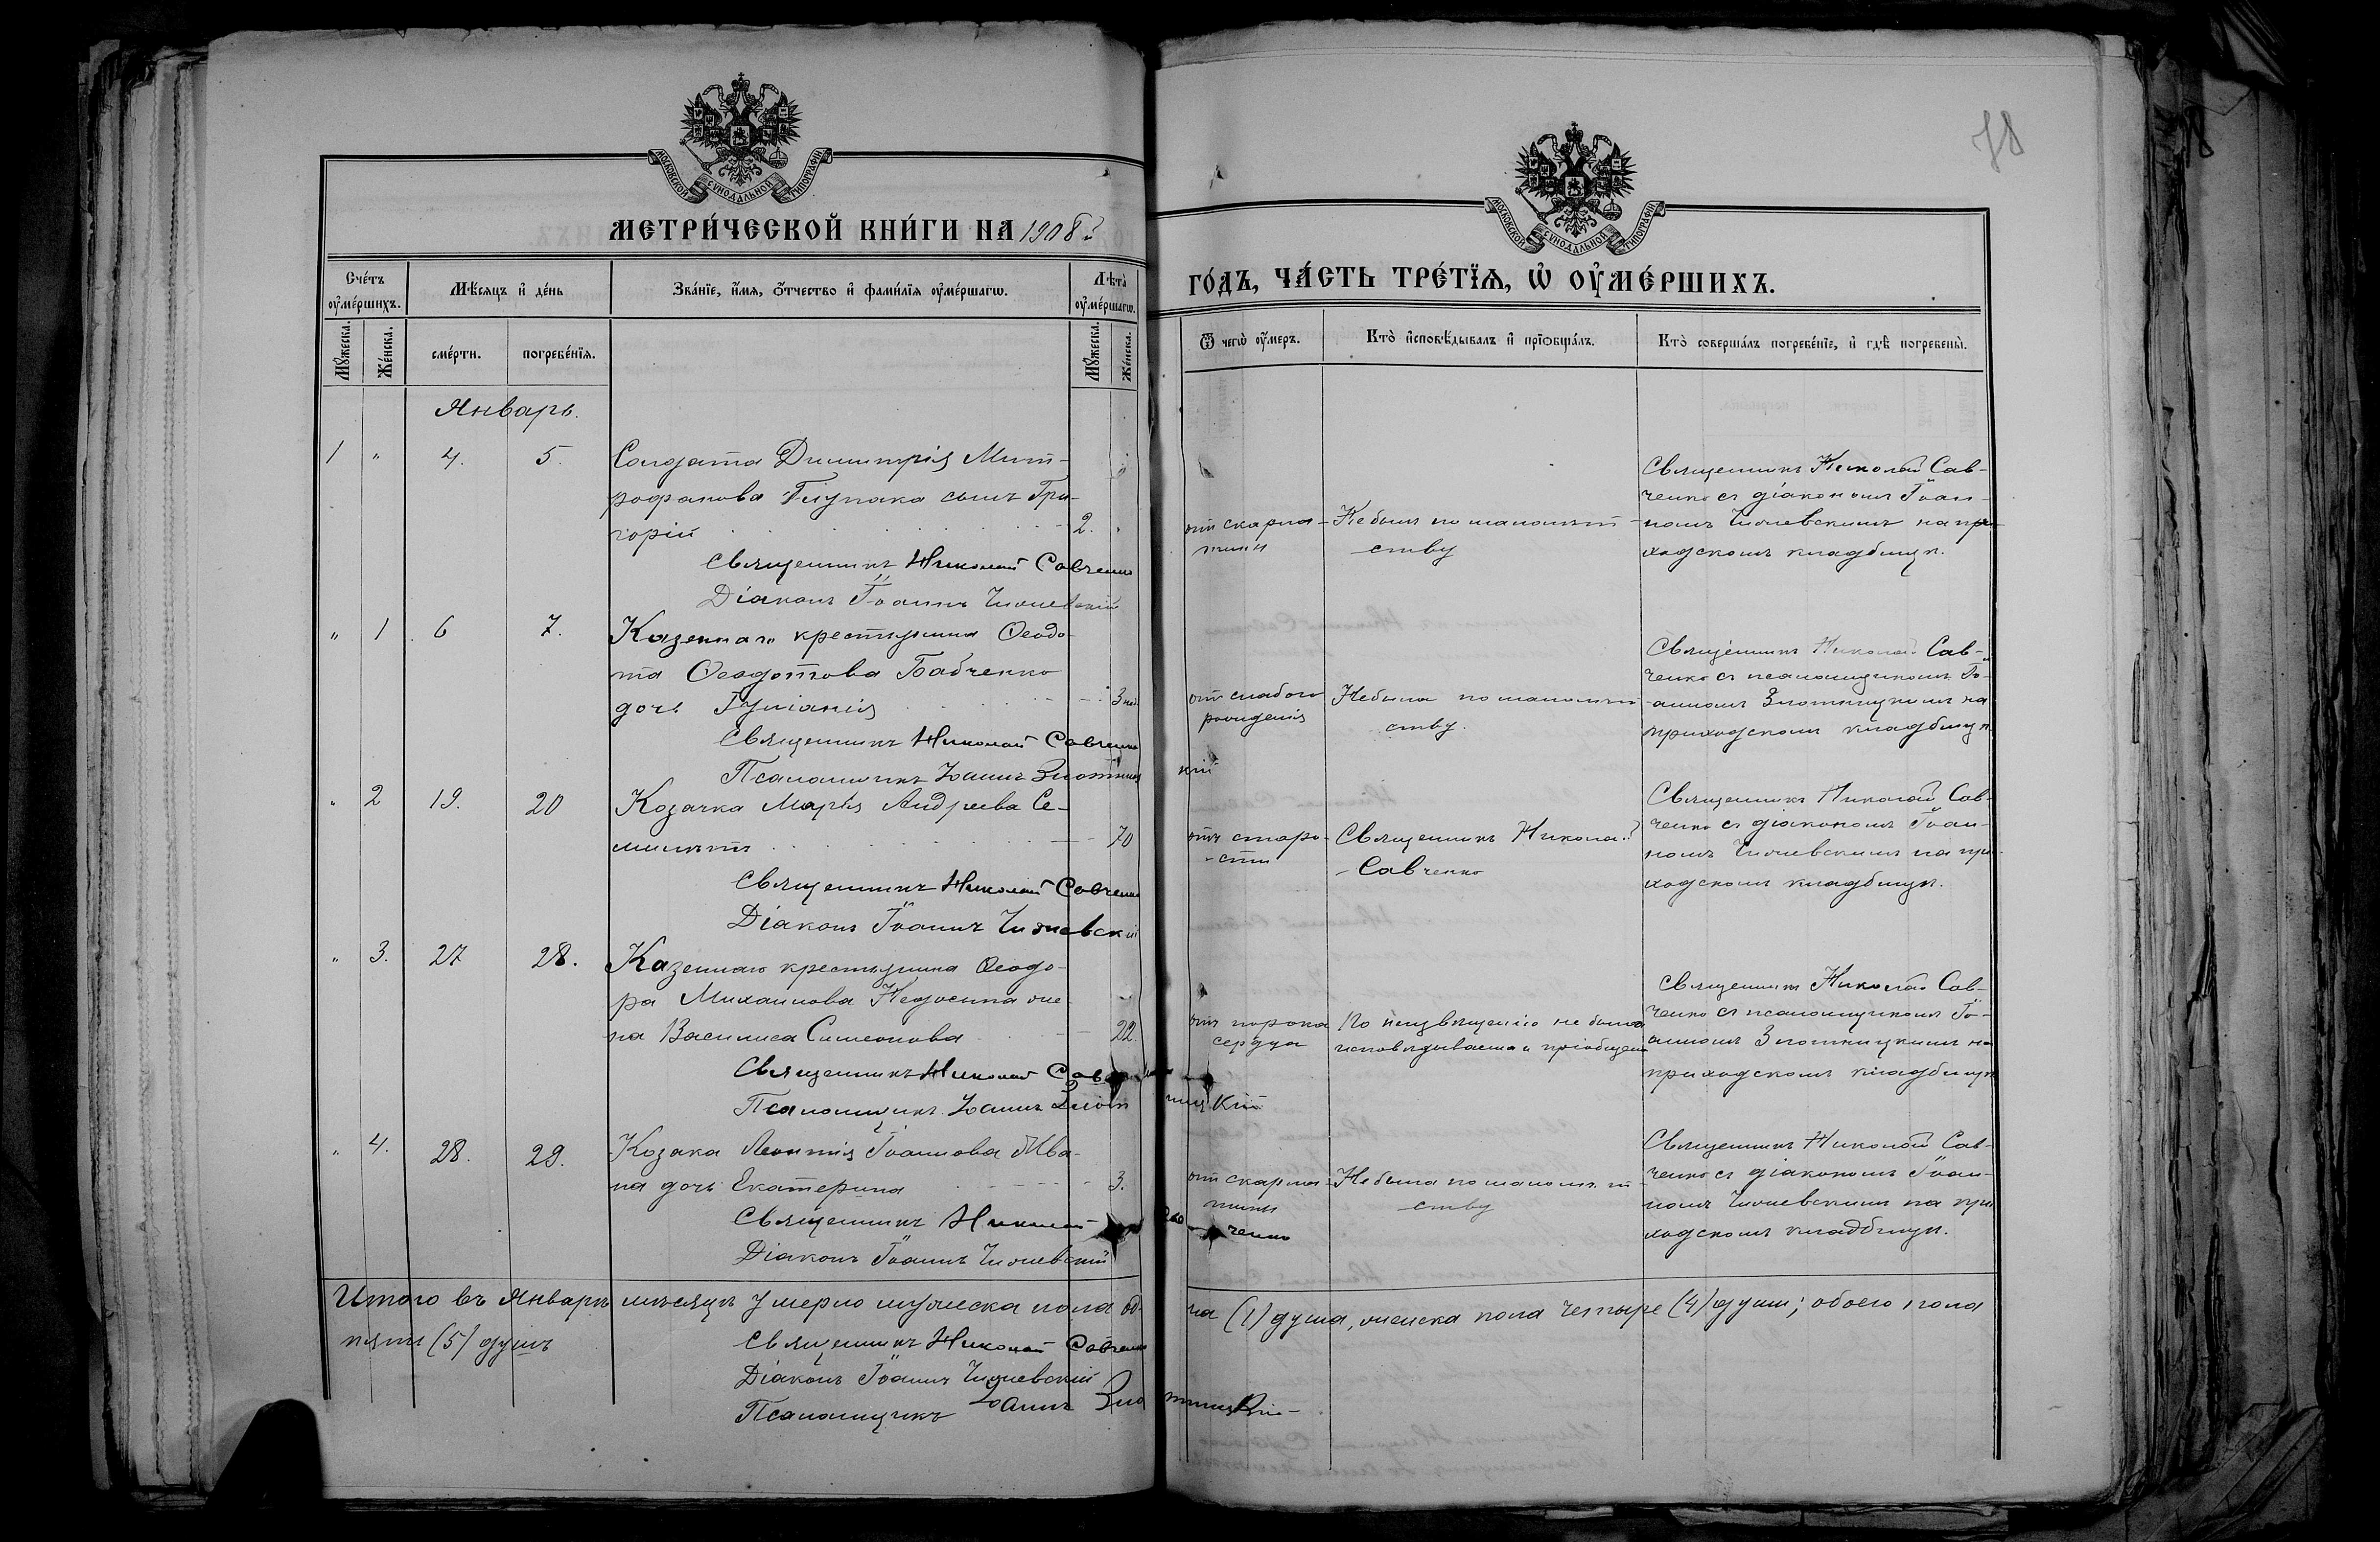 78
МОСКОВСКОЙ СѴНОДАЛЬНОЙ ТИПОГРАФІИ
МОСКОВСКОЙ СѴНОДАЛЬНОЙ ТИПОГРАФІИ
МЕТРИ́ЧЕСКОЙ КНИ́ГИ НА 1908
ГО́ДЪ, ЧА́СТЬ ТРЕ́ТЇѦ, Ѡ҆ ОУ҆МЕ́РШИХЪ.
Сче́тъ оу҆ме́ршихъ.
Мꙋ́жеска.
Же́нска.
Мѣ́сяцъ и҆ де́нь
сме́рти.
погребе́нїѧ.
Зва́нїе, и҆́мѧ, ѻ҆́тчество и҆ фами́лїѧ оу҆ме́ршагѡ.
Лѣ́та оу҆ме́ршагѡ.
Мꙋ́жеска.
Же́нска.
Ѿ чегѡ̀ оу҆́меръ.
Кто̀ и҆сповѣ́дывалъ и҆ прїѻбща́лъ.
Кто̀ соверша́лъ погребе́нїе, и҆ гдѣ̀ погребены̀.
Январь.
1 " 4. 5.
Солдата Димитрія Мит-
рофанова Глупака сынъ Гри-
горій 2. "
Священникъ Николай Савченко
Діаконъ Іоаннъ
отъ скарла-
тины
Не былъ по малолѣт-
ству
Священникъ Николай Сав-
ченко съ діакономъ Іоан-
номъ на при-
ходскомъ кладбищѣ.
" 1 6 7.
Казеннаго крестьянина Ѳеодо-
та Ѳеодотова Бабченко
дочь Іуліанія 3 нед.
Священникъ Николай Савченко
Псаломщикъ Іоаннъ Злотницкій
отъ слабого
рожденія
Не была по малолѣт-
ству.
Священникъ Николай Сав-
ченко съ псаломщикомъ Іо-
анномъ Злотницкимъ на
приходскомъ кладбищѣ
" 2 19. 20
Козачка Марія Андреева Се-
70
Священникъ Николай Савченко
Діаконъ Іоаннъ
отъ старо-
сти
Священникъ Николай
Савченко
Священникъ Николай Сав-
ченко съ діакономъ Іоан-
номъ на при-
ходскомъ кладбищѣ.
" 3. 27 28.
Казеннаго крестьянина Ѳеодо-
ра Михаилова жe-
на Василиса Симеонова 22.
Священникъ Николай Савченко
Псаломщикъ Іоаннъ Злотницкій
отъ порока
сердца
По неизвѣщенію не была
исповѣдываема и пріобщена
Священникъ Николай Сав-
ченко съ псаломщикомъ Іо-
анномъ Злотницкимъ на
приходскомъ кладбищѣ
" 4. 28. 29.
Козака Леонтія Іоаннова Ива-
на дочь Екатерина 3.
Священникъ Николай Савченко
Діаконъ Іоаннъ
отъ скарла-
тины
Не была по малолѣт-
ству
Священникъ Николай Сав-
ченко съ діакономъ Іоан-
номъ на при-
ходскомъ кладбищѣ.
Итого въ Январѣ мѣсяцѣ умерло мужеска пола од-
на (1) душа, женска пола четыре (4) души; обоего пола
пять (5) душъ
Священникъ Николай Савченко
Діаконъ Іоаннъ
Псаломщикъ Іоаннъ Злотницкій